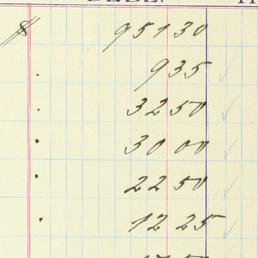 $ 951 30
9 35
32 50
30 00
22 50
12 25